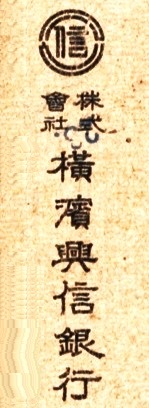 信
株式
會社
橫濱興信銀行